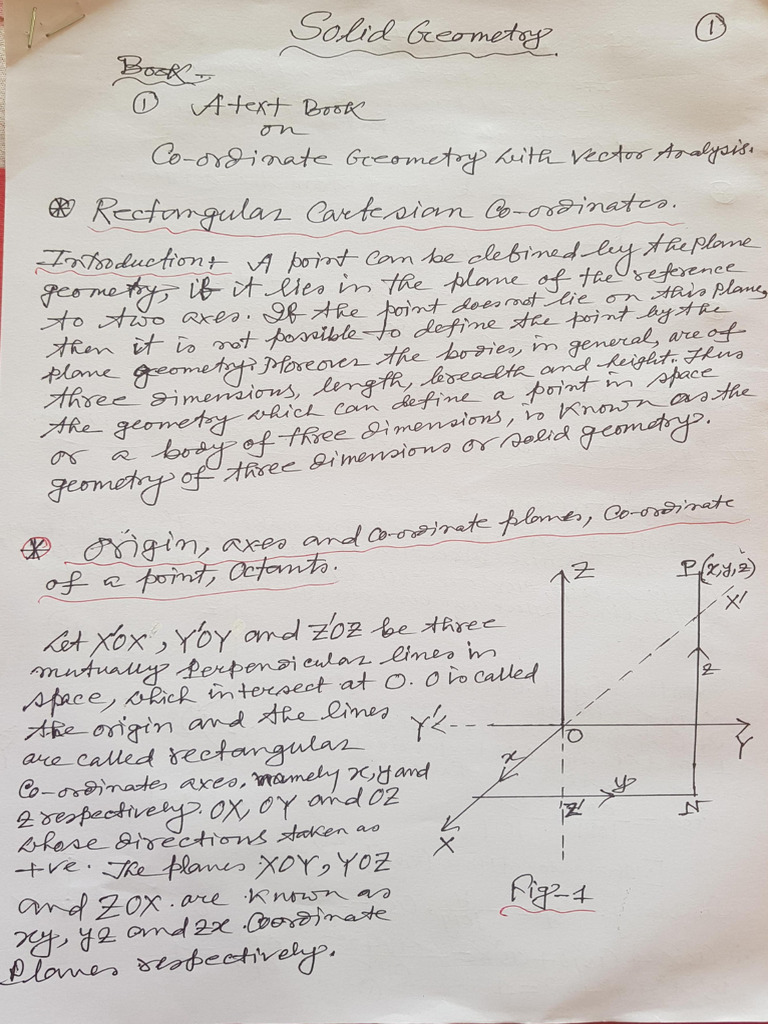 Solid Geometry
①
Book -
① A text Book
on
Co-ordinate Geometry with Vector Analysis.
Rectangular Cartesian Co-ordinates.
Introduction: A point can be defined by the plane
geometry, if it lies in the plane of the reference
to two axes. If the point does not lie on this plane,
then it is not possible to define the point by the
plane geometry. Moreover the bodies, in general, are of
three dimensions, length, breadth and height. Thus
the geometry which can define a point in space
or a body of three dimensions, is known as the
geometry of three dimensions or solid geometry.
Origin, axes and co-ordinate planes, Co-ordinate
of a point, Octants.
Let X'OX, Y'OY and Z'OZ be three
mutually perpendicular lines in
space, which intersect at O. O is called
the origin and the lines
are called rectangular
Co-ordinates axes, namely x, y and
z respectively. OX, OY and OZ
whose directions taken as
+ve. The planes XOY, YOZ
and ZOX are known as
xy, yz and zx Coordinate
Planes respectively.
Z
P(x,y,z)
X'
z
Y'
O
Y
x
y
Z'
N
X
Fig-1